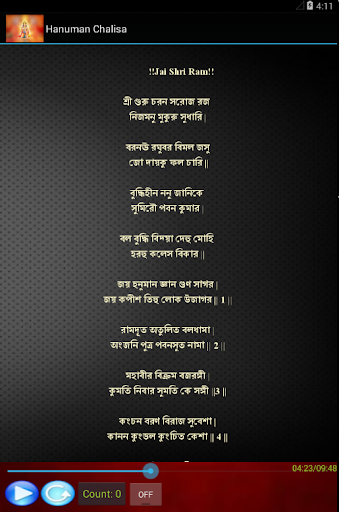 4:11
Hanuman Chalisa
!!Jai Shri Ram!!
শ্রী গুরু চরন সরোজ রজ
নিজমনু মুকুরু সুধারি |
বরনঊ রঘুবর বিমল জসু
জো দায়কু ফল চারি ||
বুদ্ধিহীন ননু জানিকে
সুমিরৌ পবন কুমার |
বল বুদ্ধি বিদয়া দেহু মোহি
হরহু কলেস বিকার ||
জয় হনুমান জ্ঞান গুণ সাগর |
জয় কপীশ তিহু লোক উজাগর || 1 ||
রামদূত অতুলিত বলধামা |
অংজনি পুত্র পবনসূত নামা || 2 ||
মহাবীর বিক্রম বজরঙ্গী |
কুমতি নিবার সূমতি কে সঙ্গী ||3 ||
কংচন বরণ বিরাজ সুবেশা |
কানন কুংডল কুংচিত কেশা || 4 ||
04:23/09:48
Count: 0
OFF